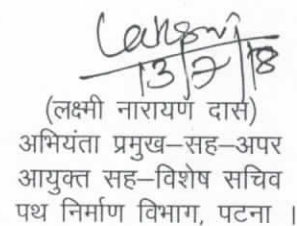 Lakshmi
13/7/18
(लक्ष्मी नारायण दास)
अभियंता प्रमुख–सह–अपर
आयुक्त सह–विशेष सचिव
पथ निर्माण विभाग, पटना ।